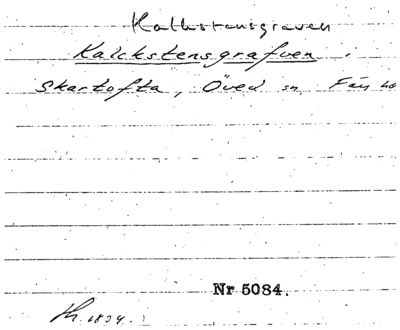 Kalkstensgraven
Kalckstensgrafven i
Skartofta, Öved sn. Färs hd
Nr 5084.
1834.